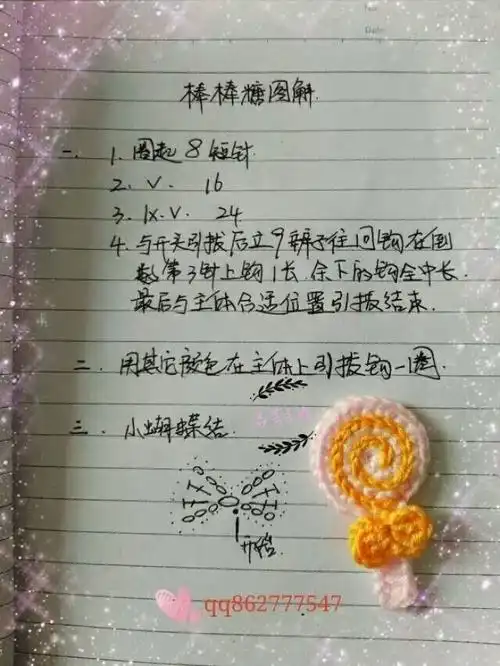 棒棒糖图解
一、 1. 圈起 8 短针
2. V. 16
3. 1X.V. 24
4. 与开头引拔后立9辫子往回钩在倒
数第3针上钩1长.余下的钩全中长.
最后与主体合适位置引拔结束.
二. 用其它颜色在主体上引拔钩一圈.
三. 小蝴蝶结.
开始.
qq862777547